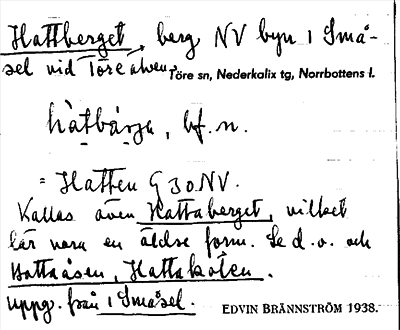 Hattberget, berg NV byn i Små-
sel vid Töreälven, Töre sn, Nederkalix tg, Norrbottens l.
hàtbärja, bf. n.
= Hatten G30NV.
Kallas även Hattaberget, vilket
lär vara en äldre form. Se d. o. och
Hattaåsen, Hattakåten.
Uppg. från i Småsel. EDVIN BRÄNNSTRÖM 1938.